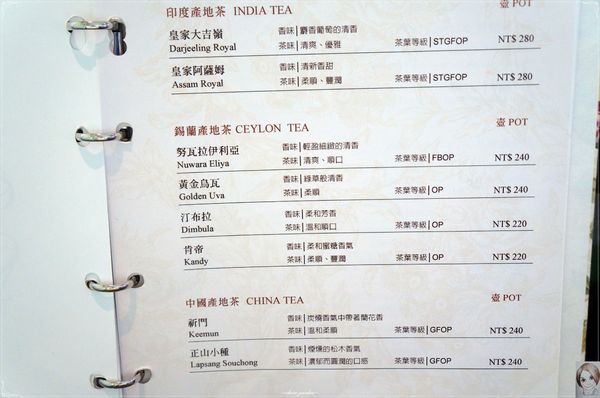 印度產地茶 INDIA TEA 壺 POT
皇家大吉嶺 香味|麝香葡萄的清香
Darjeeling Royal 茶味|清爽、優雅 茶葉等級|STGFOP NT$ 280
皇家阿薩姆 香味|清新香甜
Assam Royal 茶味|柔順、豐潤 茶葉等級|STGFOP NT$ 280
錫蘭產地茶 CEYLON TEA 壺 POT
努瓦拉伊利亞 香味|輕盈細緻的清香
Nuwara Eliya 茶味|清爽、順口 茶葉等級|FBOP NT$ 240
黃金烏瓦 香味|綠草般清香
Golden Uva 茶味|柔順 茶葉等級|OP NT$ 240
汀布拉 香味|柔和芳香
Dimbula 茶味|溫和順口 茶葉等級|OP NT$ 220
肯帝 香味|柔和蜜糖香氣
Kandy 茶味|柔順、豐潤 茶葉等級|OP NT$ 220
中國產地茶 CHINA TEA 壺 POT
祈門 香味|炭燒香氣中帶著蘭花香
Keemun 茶味|溫和柔順 茶葉等級|GFOP NT$ 240
正山小種 香味|煙燻的松木香氣
Lapsang Souchong 茶味|濃郁而圓潤的口感 茶葉等級|GFOP NT$ 240